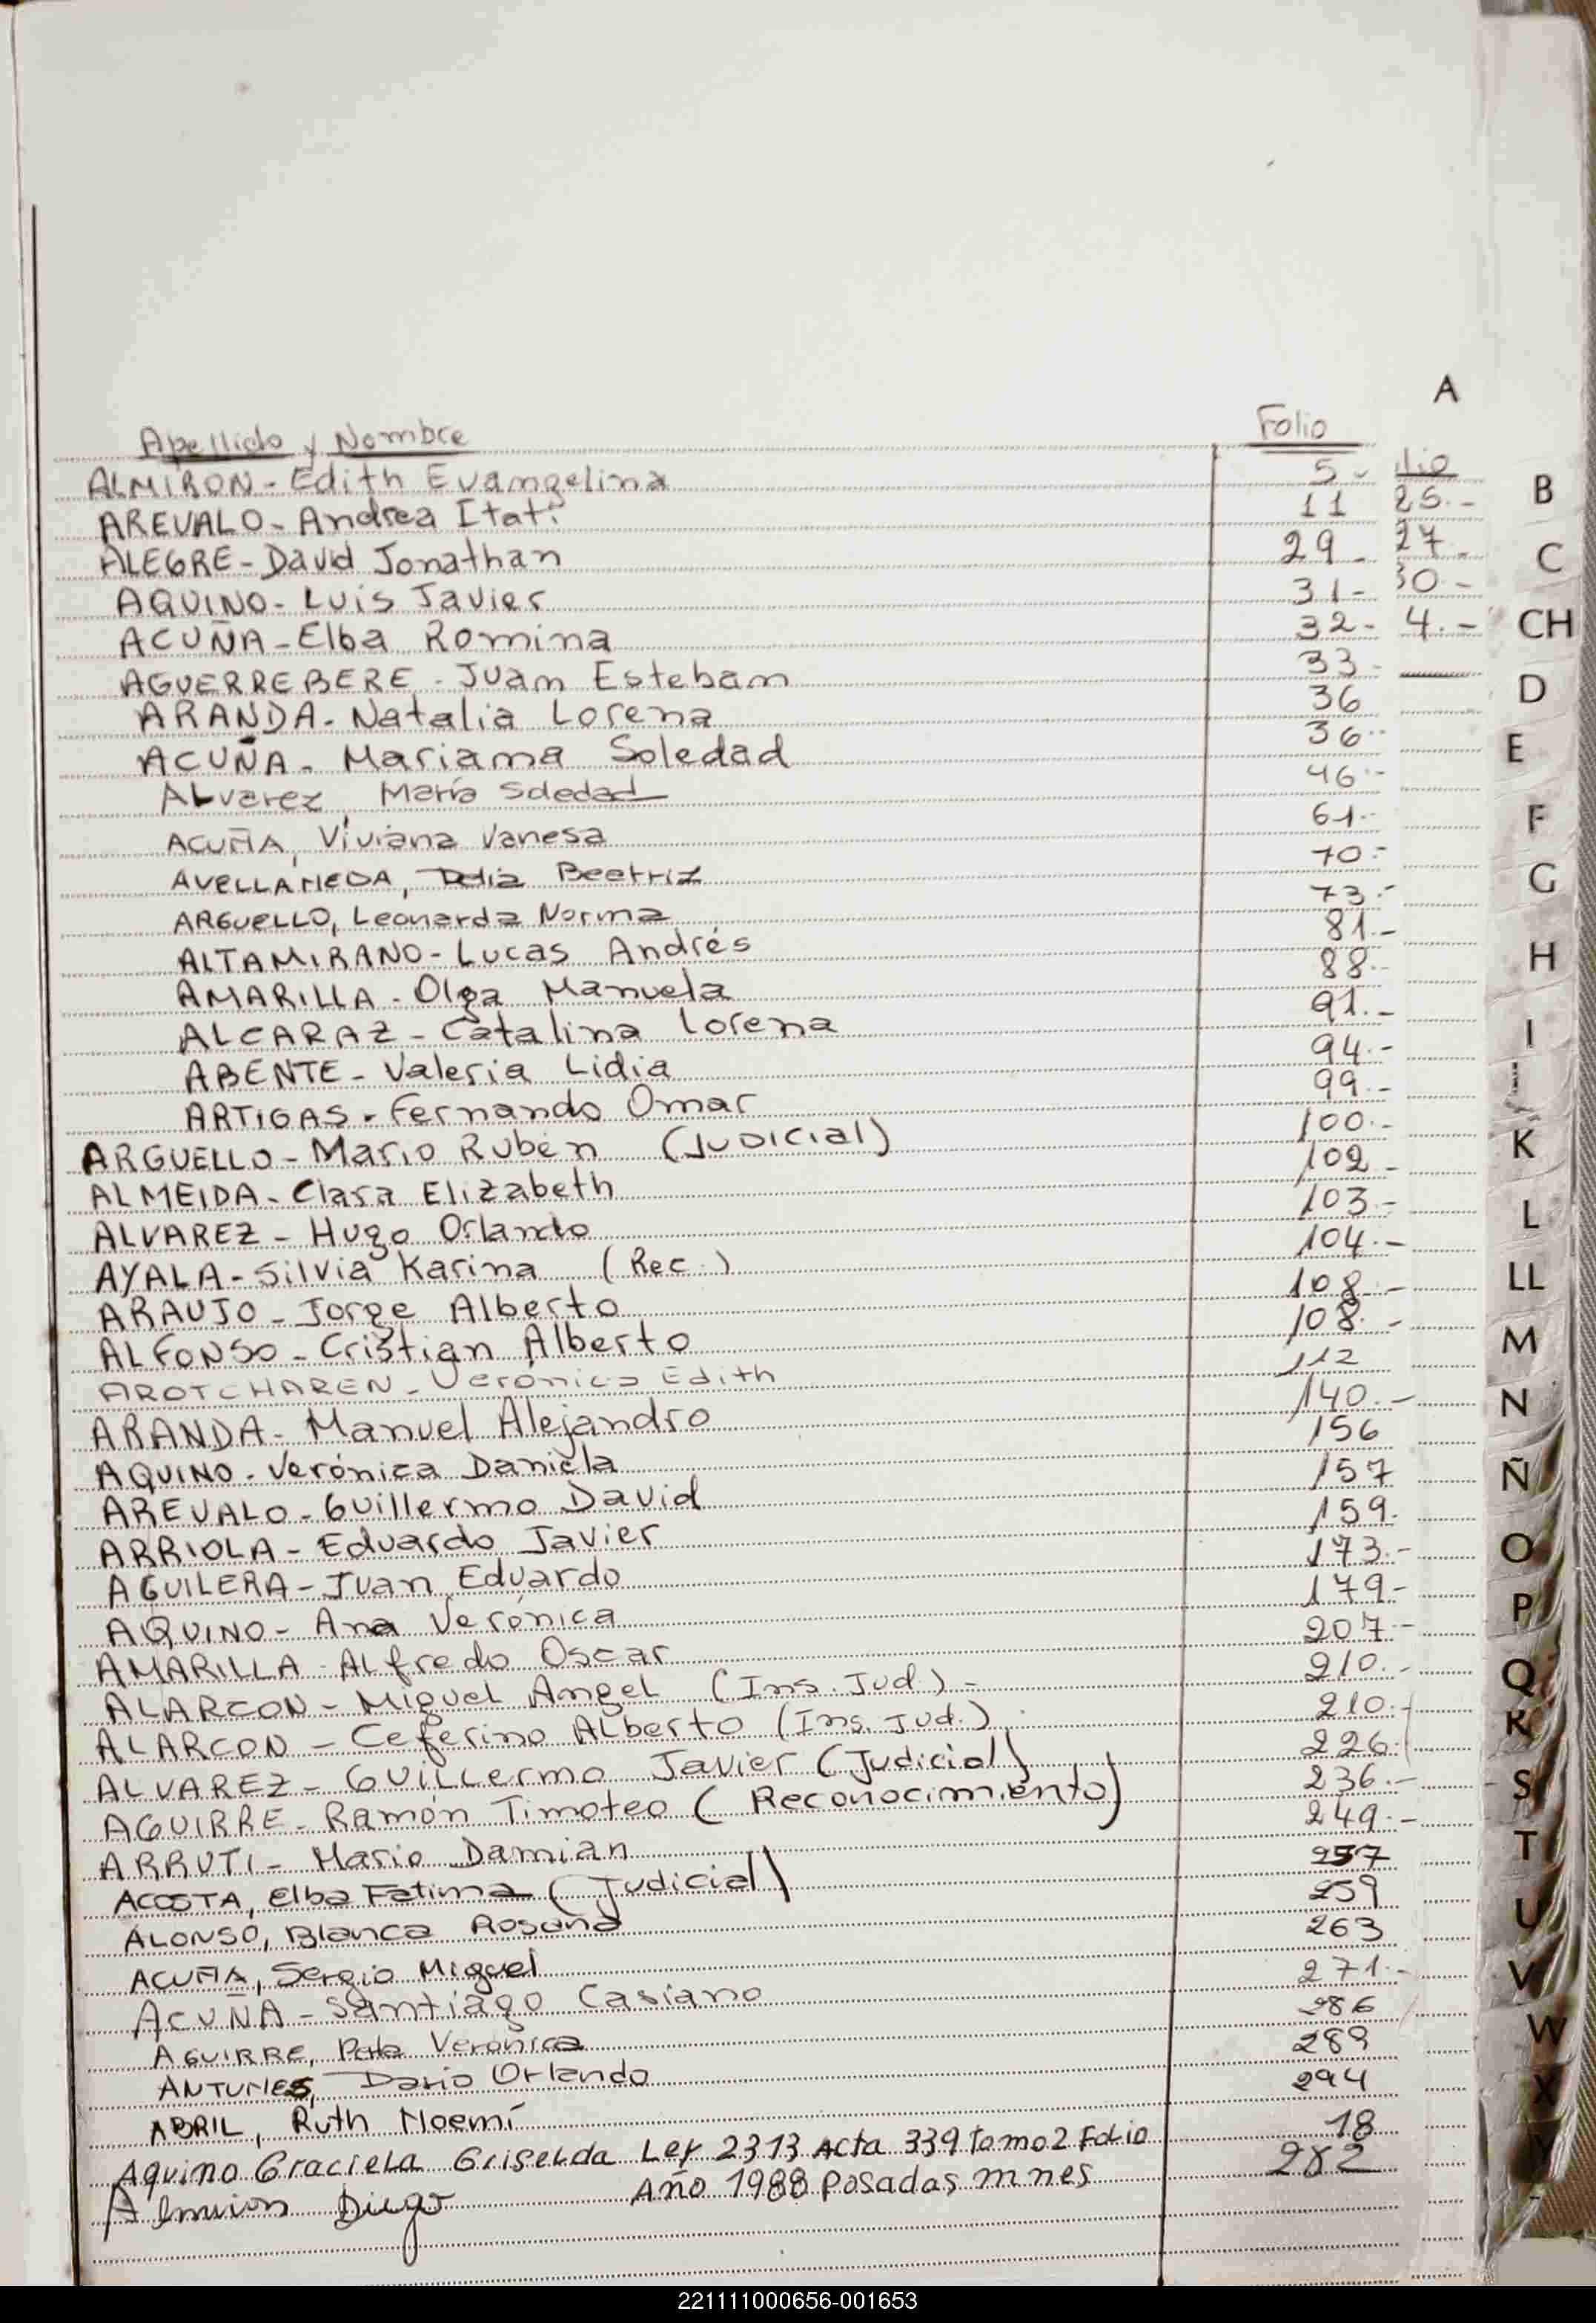 A
Apellido y Nombre Folio
ALMIRON - Edith Evangelina 5 -
AREVALO - Andrea Itatí 11
ALEGRE - David Jonathan 29 -
AQUINO - Luis Javier 31 -
ACUÑA - Elba Romina 32 -
AGUERREBERE - Juan Esteban 33 -
ARANDA - Natalia Lorena 36
ACUÑA - Mariana Soledad 36 --
Alvarez, María Soledad 46 --
ACUÑA, Viviana Vanesa 61 --
AVELLANEDA, Delia Beatriz 70 -
ARGUELLO, Leonarda Norma 73 -
ALTAMIRANO - Lucas Andrés 81.-
AMARILLA - Olga Manuela 88.-
ALCARAZ - Catalina Lorena 91.-
ABENTE - Valeria Lidia 94.-
ARTIGAS - Fernando Omar 99.-
ARGUELLO - Mario Rubén (JUDICIAL) 100.-
ALMEIDA - Clara Elizabeth 102 -
ALVAREZ - Hugo Orlando 103.-
AYALA - Silvia Karina (Rec.) 104.-
ARAUJO - Jorge Alberto 108.-
ALFONSO - Cristian Alberto 108.-
AROTCHAREN - Verónica Edith 112
ARANDA - Manuel Alejandro 140.-
AQUINO - Verónica Daniela 156
AREVALO - Guillermo David 157
ARRIOLA - Eduardo Javier 159.
AGUILERA - Juan Eduardo 173.-
AQUINO - Ana Verónica 179-
AMARILLA - Alfredo Oscar 207-
ALARCON - Miguel Angel (Ins. Jud.) - 210.-
ALARCON - Ceferino Alberto (Ins. Jud.) 210.-
ALVAREZ - Guillermo Javier (Judicial) 226.
AGUIRRE - Ramón Timoteo (Reconocimiento) 236.-
ARRUTI - Mario Damian 249.-
ACOSTA, Elba Fatima (Judicial) 257
ALONSO, Blanca Rosana 259
ACUÑA, Sergio Miguel 263
ACUÑA - Santiago Casiano 271.-
AGUIRRE, Verónica 286
ANTUNES, Dario Orlando 289
ABRIL, Ruth Noemí 294
Aquino Graciela Griselda Ley 2313 Acta 339 tomo 2 Folio 18
Almiron Diego Año 1988 Posadas mnes 282
lio
25.-
27.
30.-
4.-
B
C
CH
D
E
F
G
H
I
K
L
LL
M
N
Ñ
O
P
Q
R
S
T
U
V
W
X
Y
221111000656-001653